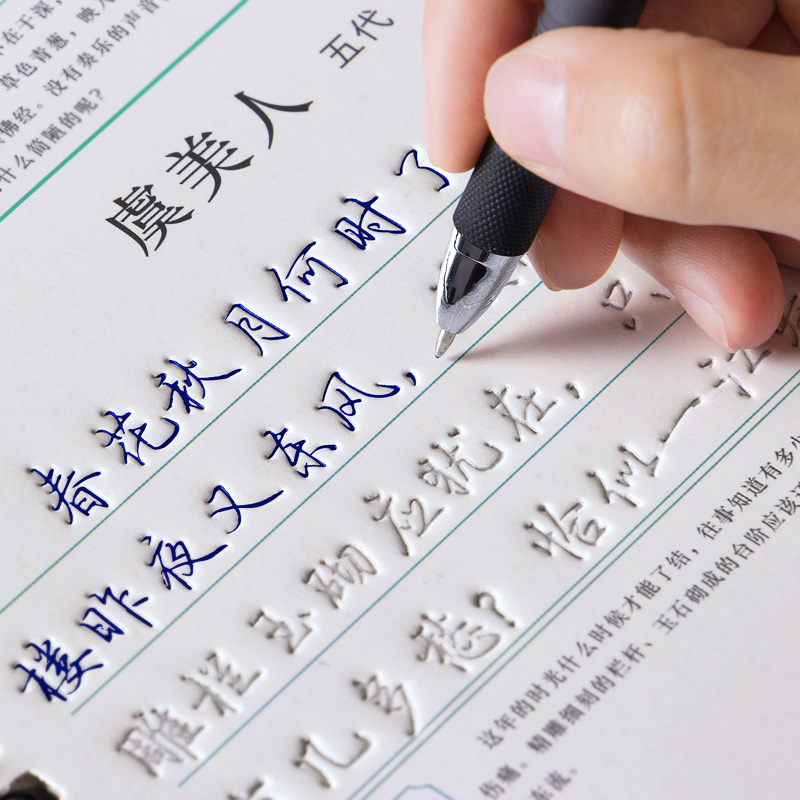 不在于深，
草色青葱，映入
佛经。没有奏乐的声音
什么简陋的呢？
虞美人
五代
春花秋月何时了
楼昨夜又东风，
雕栏玉砌应犹在，只
几多愁？恰似一江
这年的时光什么时候才能了结，往事知道有多少
伤痛。精雕细刻的栏杆、玉石砌成的台阶应该还
东流。